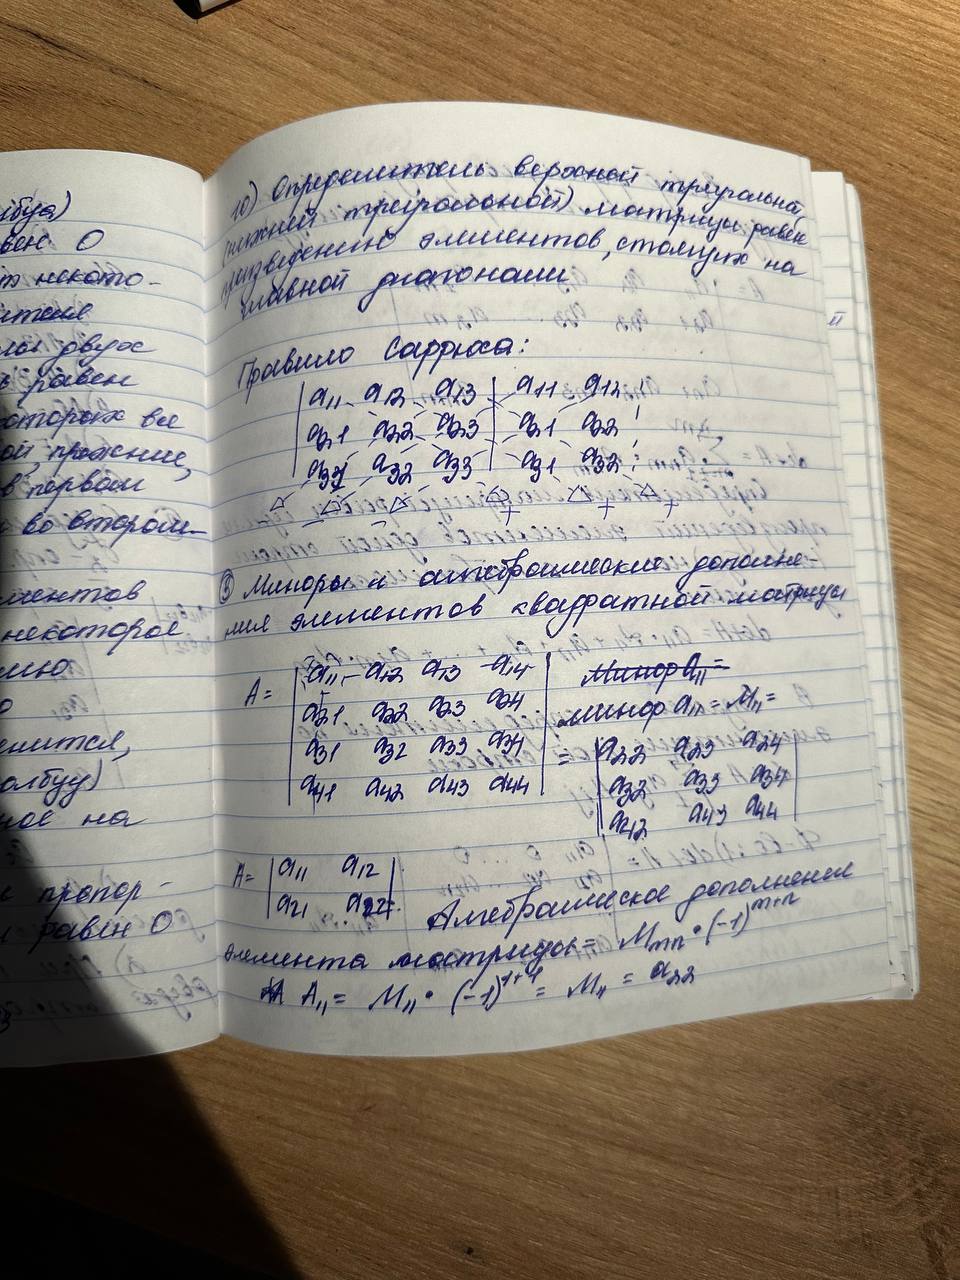 лбца)
вен 0
некото-
двух
равен
оторых все
прежние,
в первом
во втором-
ментов
некоторое
нию
0
енится,
олбцу)
ное на
пропор-
равен 0
10) Определитель верхней треугольной
(нижней треугольной) матрицы равен
произведению элементов, стоящих на
главной диагонали.
Правило Саррюса:
a11 a12 a13 a11 a12
a21 a22 a23 a21 a22
a31 a32 a33 a31 a32
- - - + + +
③ Миноры и алгебраические дополне-
ния элементов квадратной матрицы
A = a11 a12 a13 a14 Минор a11 =
a21 a22 a23 a24 минор a11 = M11 =
a31 a32 a33 a34 = a22 a23 a24
a41 a42 a43 a44 a32 a33 a34
a42 a43 a44
A = a11 a12
a21 a22. Алгебраическое дополнение
элемента матрицы = Mmn · (-1)^m+n
A11 = M11 · (-1)^1+1 = M11 = a22